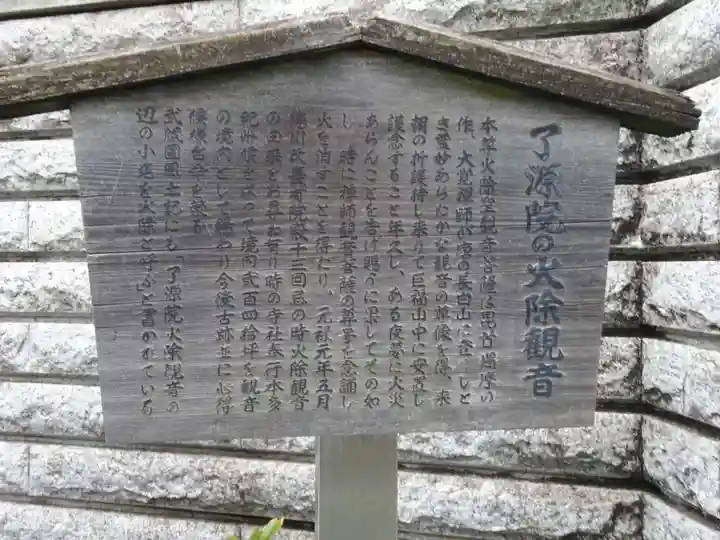 了源院の火除観音
本尊火除聖観音菩薩は毘首羯摩の
作、大覚禅師が唐の長白山に登
霊妙あらたかな観音の尊像を得、来
朝の折護持し来りて巨福山中に安置し
護念すること年久し、ある夜夢に火災
あらんことを告げ賜うに果してその如
し 時に禅師観音菩薩の尊号を念誦し
火を消すことを得たり、元禄元年五月
徳川 有院殿十三回忌の時火除観音
のお尋ね有り時の寺社奉行本多
紀州候を以って境内弐百四拾坪を観音
の境内として賜わり今後古跡並に心得
候様台命を蒙る
武蔵国風土記にも「了源院火除観音の
辺の小名を火除と呼ぶ」と書かれている